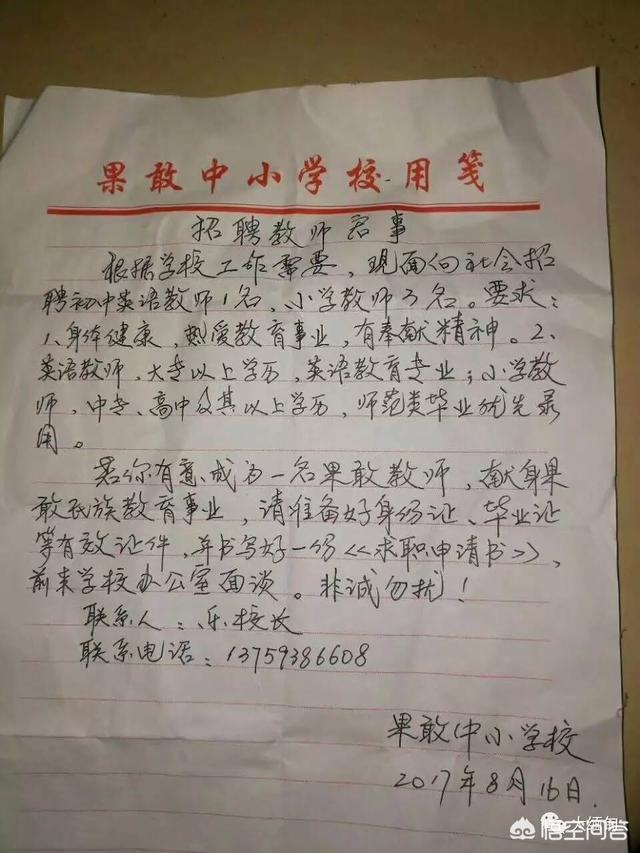 果敢中小学校用笺
招聘教师启事
根据学校工作需要，现面向社会招
聘初中英语教师1名，小学教师3名。要求：
1、身体健康，热爱教育事业，有奉献精神。2、
英语教师，大专以上学历，英语教育专业；小学教
师，中专、高中及其以上学历，师范类毕业优先录
用。
若你有意成为一名果敢教师，献身果
敢民族教育事业，请准备好身份证、毕业证
等有效证件，并书写好一份《求职申请书》，
前来学校办公室面谈。非诚勿扰！
联系人：乐校长
联系电话：13759386608
果敢中小学校
2017年8月16日.
大缅甸
悟空问答